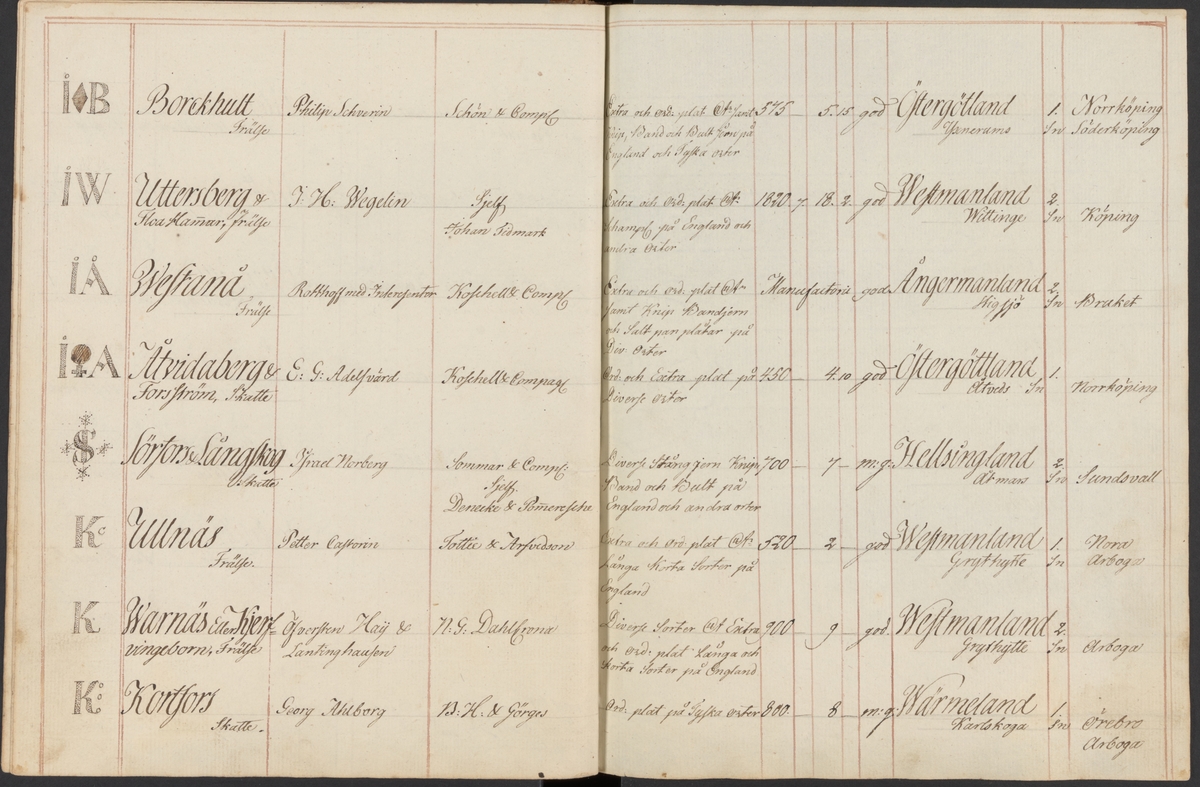 I♦B Borckhult Philip Schverin Schön & Comp Extra och Ord. plat 575 — 5.15 god Östergötland 1. Norrköping
Frälse Knip, Band och Bult Jern på Ynerums Sn Söderköping
England och Tyska orter
IW Uttersberg & J: H: Wegelin Sjelf Extra och Ord: plat 1820 7. 18. 2. god Westmanland 2.
Floa Ham̄ar, Frälse Johan Tidmark på England och Wittinge Sn Köping
andra orter
IÅ Westanå Rotthoff med Interesentor Koschell & Comp Extra och Ord. plat Manufactorie god Ångermanland 2.
Frälse samt Knip Bandjern Higsjö Sn Bruket
och Salt pan plåtar på
Div. orter
I A Åtvidaberg & E: G: Adelsvärd Koschell & Compag Ord. och Extra plat på 450 — 4.10 god Östergöttland 1.
Forsström, Skatte Diverse orter Åtveds Sn Norrköping
S Sörfors & Långskog Israel Norberg Sommar & Comp: Diverse Stång jern Knip 700 — 7 — m: g: Hellsingland 2. Sundsvall
Skatte Sjelf Band och Bult på Atmars Sn
Denecke & Pom̄eresche England och andra orter
Kc Ullnäs Petter Castorin Tottie & Arfvidson Extra och Ord. plat 520 — 2 — god Westmanland 1. Nora
Frälse. Långa Korta Sorter på Grythytte Sn Arboga
England
K Warnäs Eller Kjerf- Öfversten Haij & N: G: Dahlcrona Diverse Sorter Extra 900 — 9 — god Westmanland 2.
vingeborn, Frälse Lantinghausen och Ord: plat Långa och Grythytte Sn Arboga
Korta Sorter på England
K Kortfors Georg Ahlborg B: H: & Görges Ord. plat på Tyska orter 800 — 8 — m: g: Wärmeland 1.
Skatte. Karlskoga Sn Örebro
Arboga